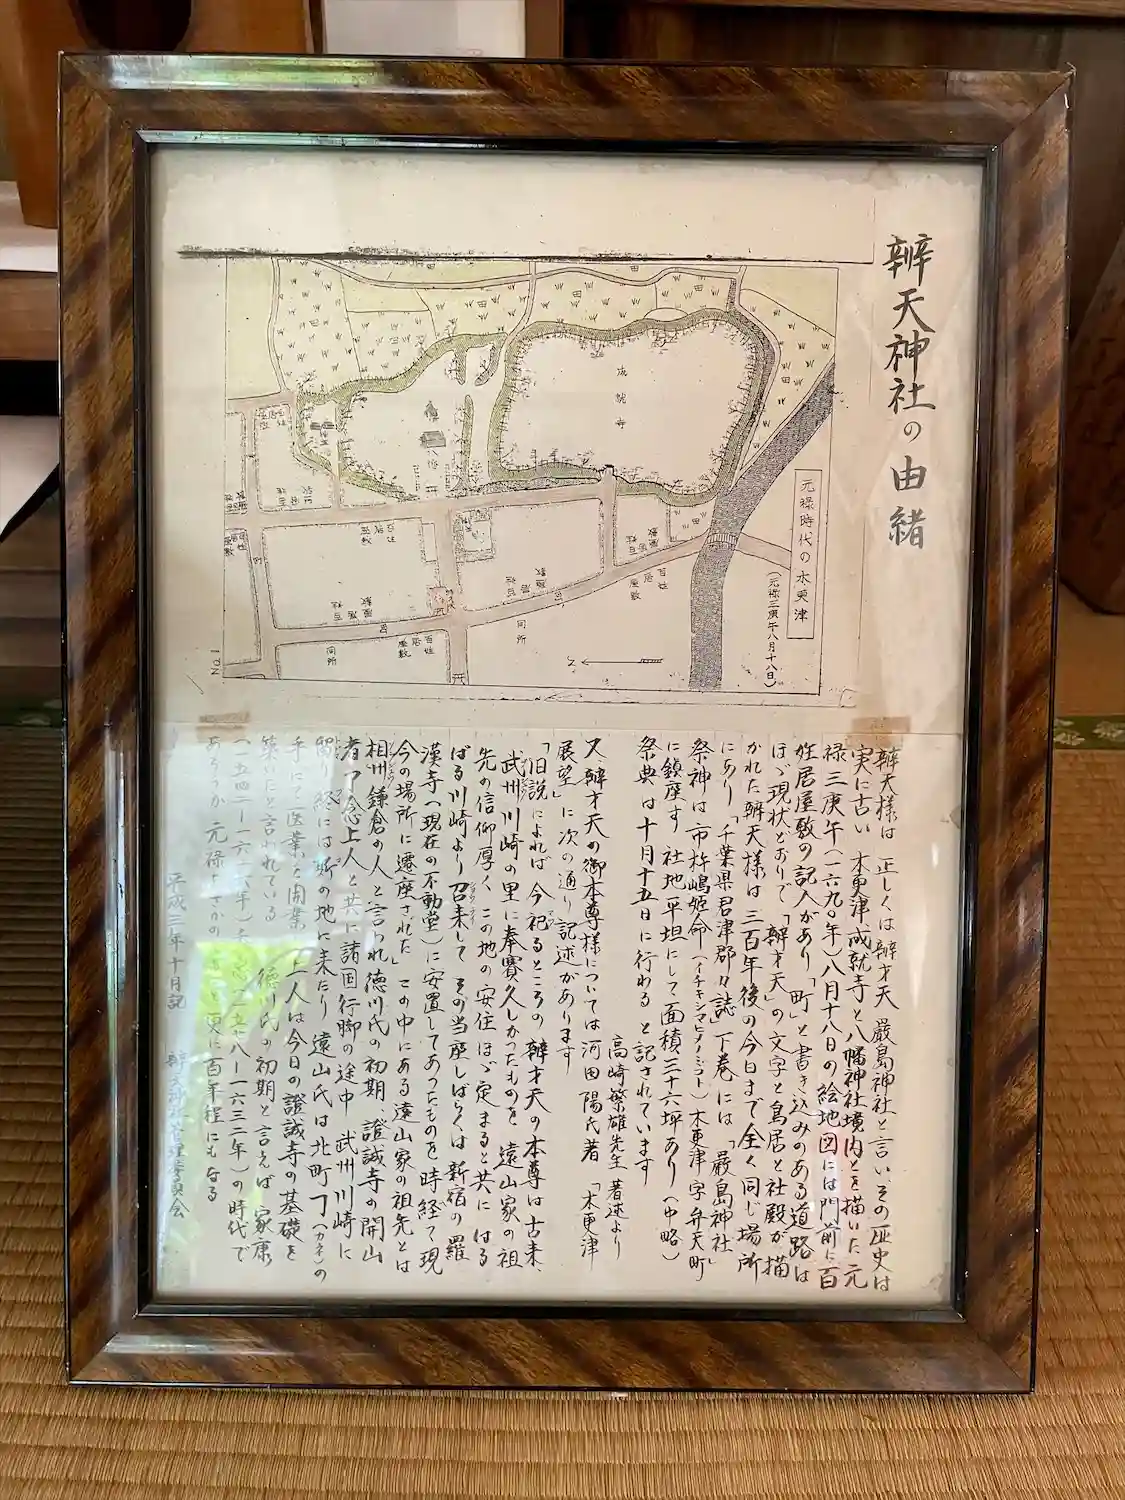 辨天神社の由緒
元禄時代の木更津
(元禄三庚午八月十八日)
成就寺
八幡
同所
同所
N
No.1
辨天様は 正しくは辨才天 厳島神社と言い、その歴史は
実に古い 木更津成就寺と八幡神社境内とを描いた 元
禄三庚午(一六九〇年)八月十八日の絵地図には門前に百
姓居屋敷の記入があり「町」と書き込みのある道路は
ほゞ現状どおりで「辨才天」の文字と鳥居と社殿が描
かれた辨天様は 三百年後の今日まで全く同じ場所
にあり「千葉県君津郡々誌」下巻には「厳島神社」
祭神は市杵嶋姫命(イチキシマヒメノミコト)木更津字弁天町
に鎮座す 社地平坦にして面積三十六坪あり(中略)
祭典は十月十五日に行わる と記されています
高崎繁雄先生 著述より
又辨才天の御本尊様については河田陽氏著「木更津
展望」に次の通り記述があります
「旧説によれば 今祀るところの 辨才天の本尊は古来、
武州川崎の里に奉賽久しかったものを 遠山家の祖
先の信仰厚く この地の安住ほゞ定まると共に はる
ばる川崎より召来して その当座しばらくは 新宿の羅
漢寺(現在の不動堂)に安置してあったものを時経て現
今の場所に遷座された」この中にある遠山家の祖先とは
相州鎌倉の人と言われ徳川氏の初期、證誠寺の開山
者了念上人と共に諸国行脚の途中 武州川崎に
終には所の地に来たり 遠山氏は北町 ㇕(カネ)の
手にて医業を開業 上人は今日の證誠寺の基礎を
築いたと言われている 徳川氏の初期と言えば 家康
(一五四二ー一六一六年) ー一六三二年)の時代で
あろうか 元禄より 更に百年程にもなる
平成三年十月記 辨天神社管理委員会